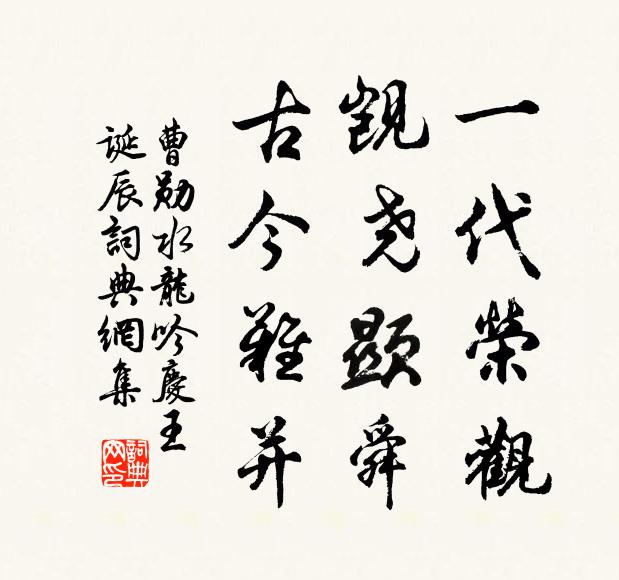 一代榮觀
觊尧顯舜
古今難并
曹勛水龍吟慶王
誕辰詞典網集
詞典网印